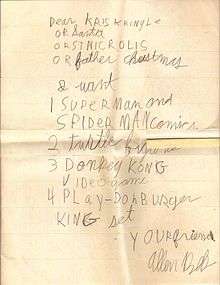 Dear KRIS KRINGLE
OR Santa
OR STNICROLIS
OR father christmas
I want
1 SUPERMAN and
SPIDERMAN comics
2 turtle
3 DONKEY KONG
VIDEO game
4 PLay-DOH BURGER
KING set
YOUR friend